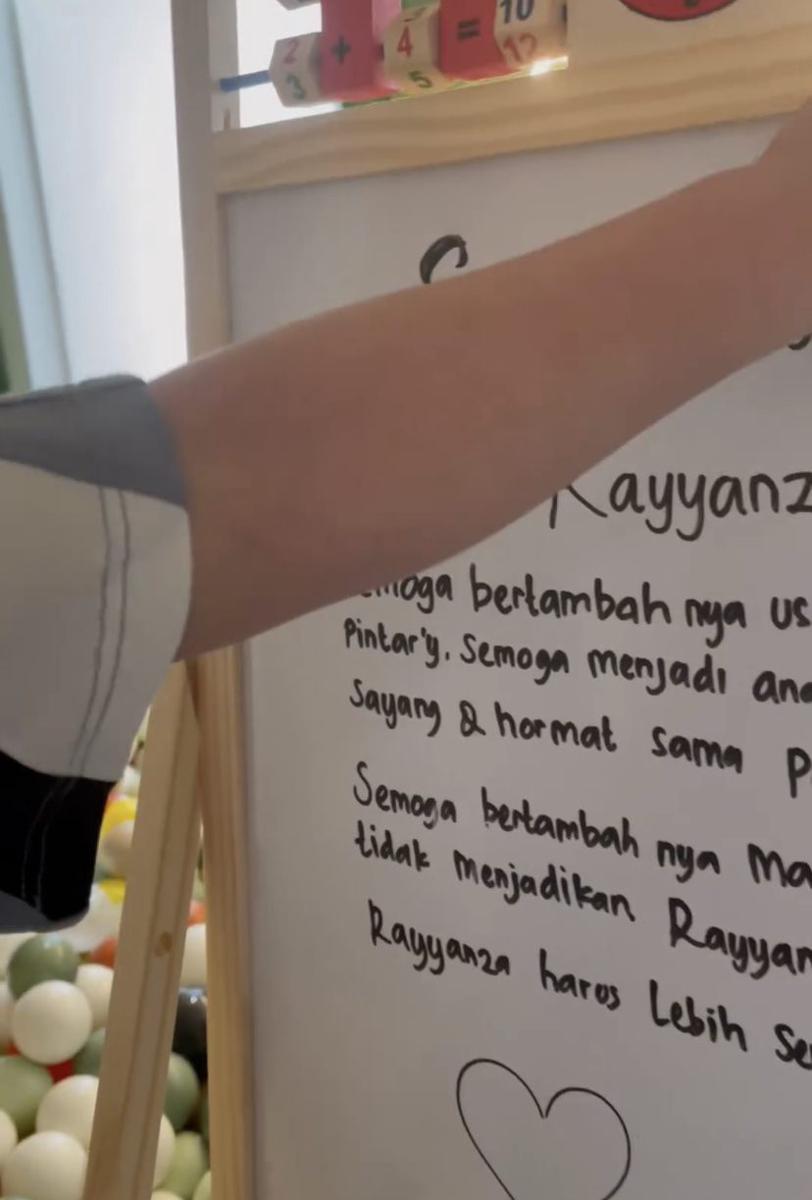 2 + 4 = 10
3 5 12
Rayyanz
Semoga bertambah nya us
Pintar'y. Semoga menjadi ana
Sayang & hormat sama P
Semoga bertambah nya Ma
tidak menjadikan Rayyan
Rayyanza harus Lebih Se